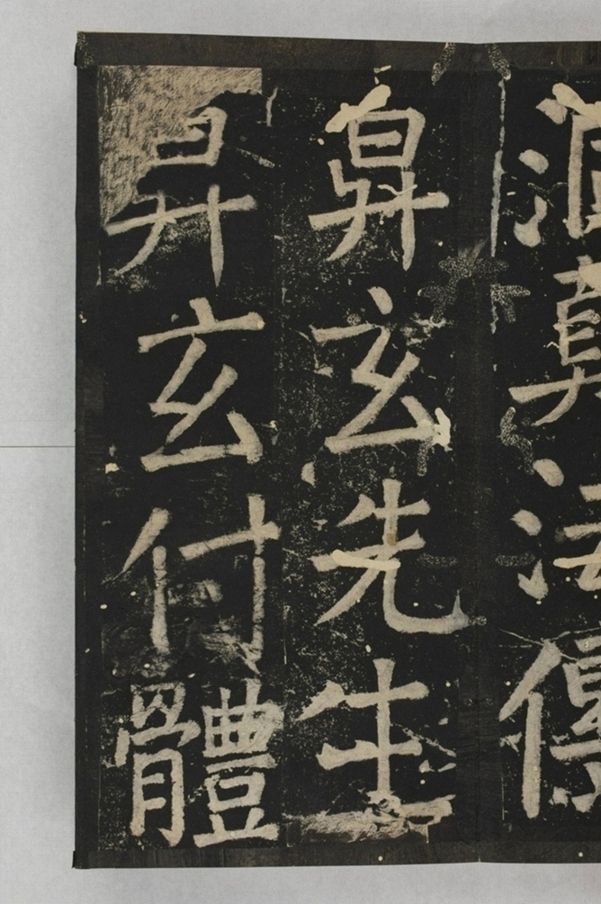 洞真法傳
昇玄先生
昇玄付體